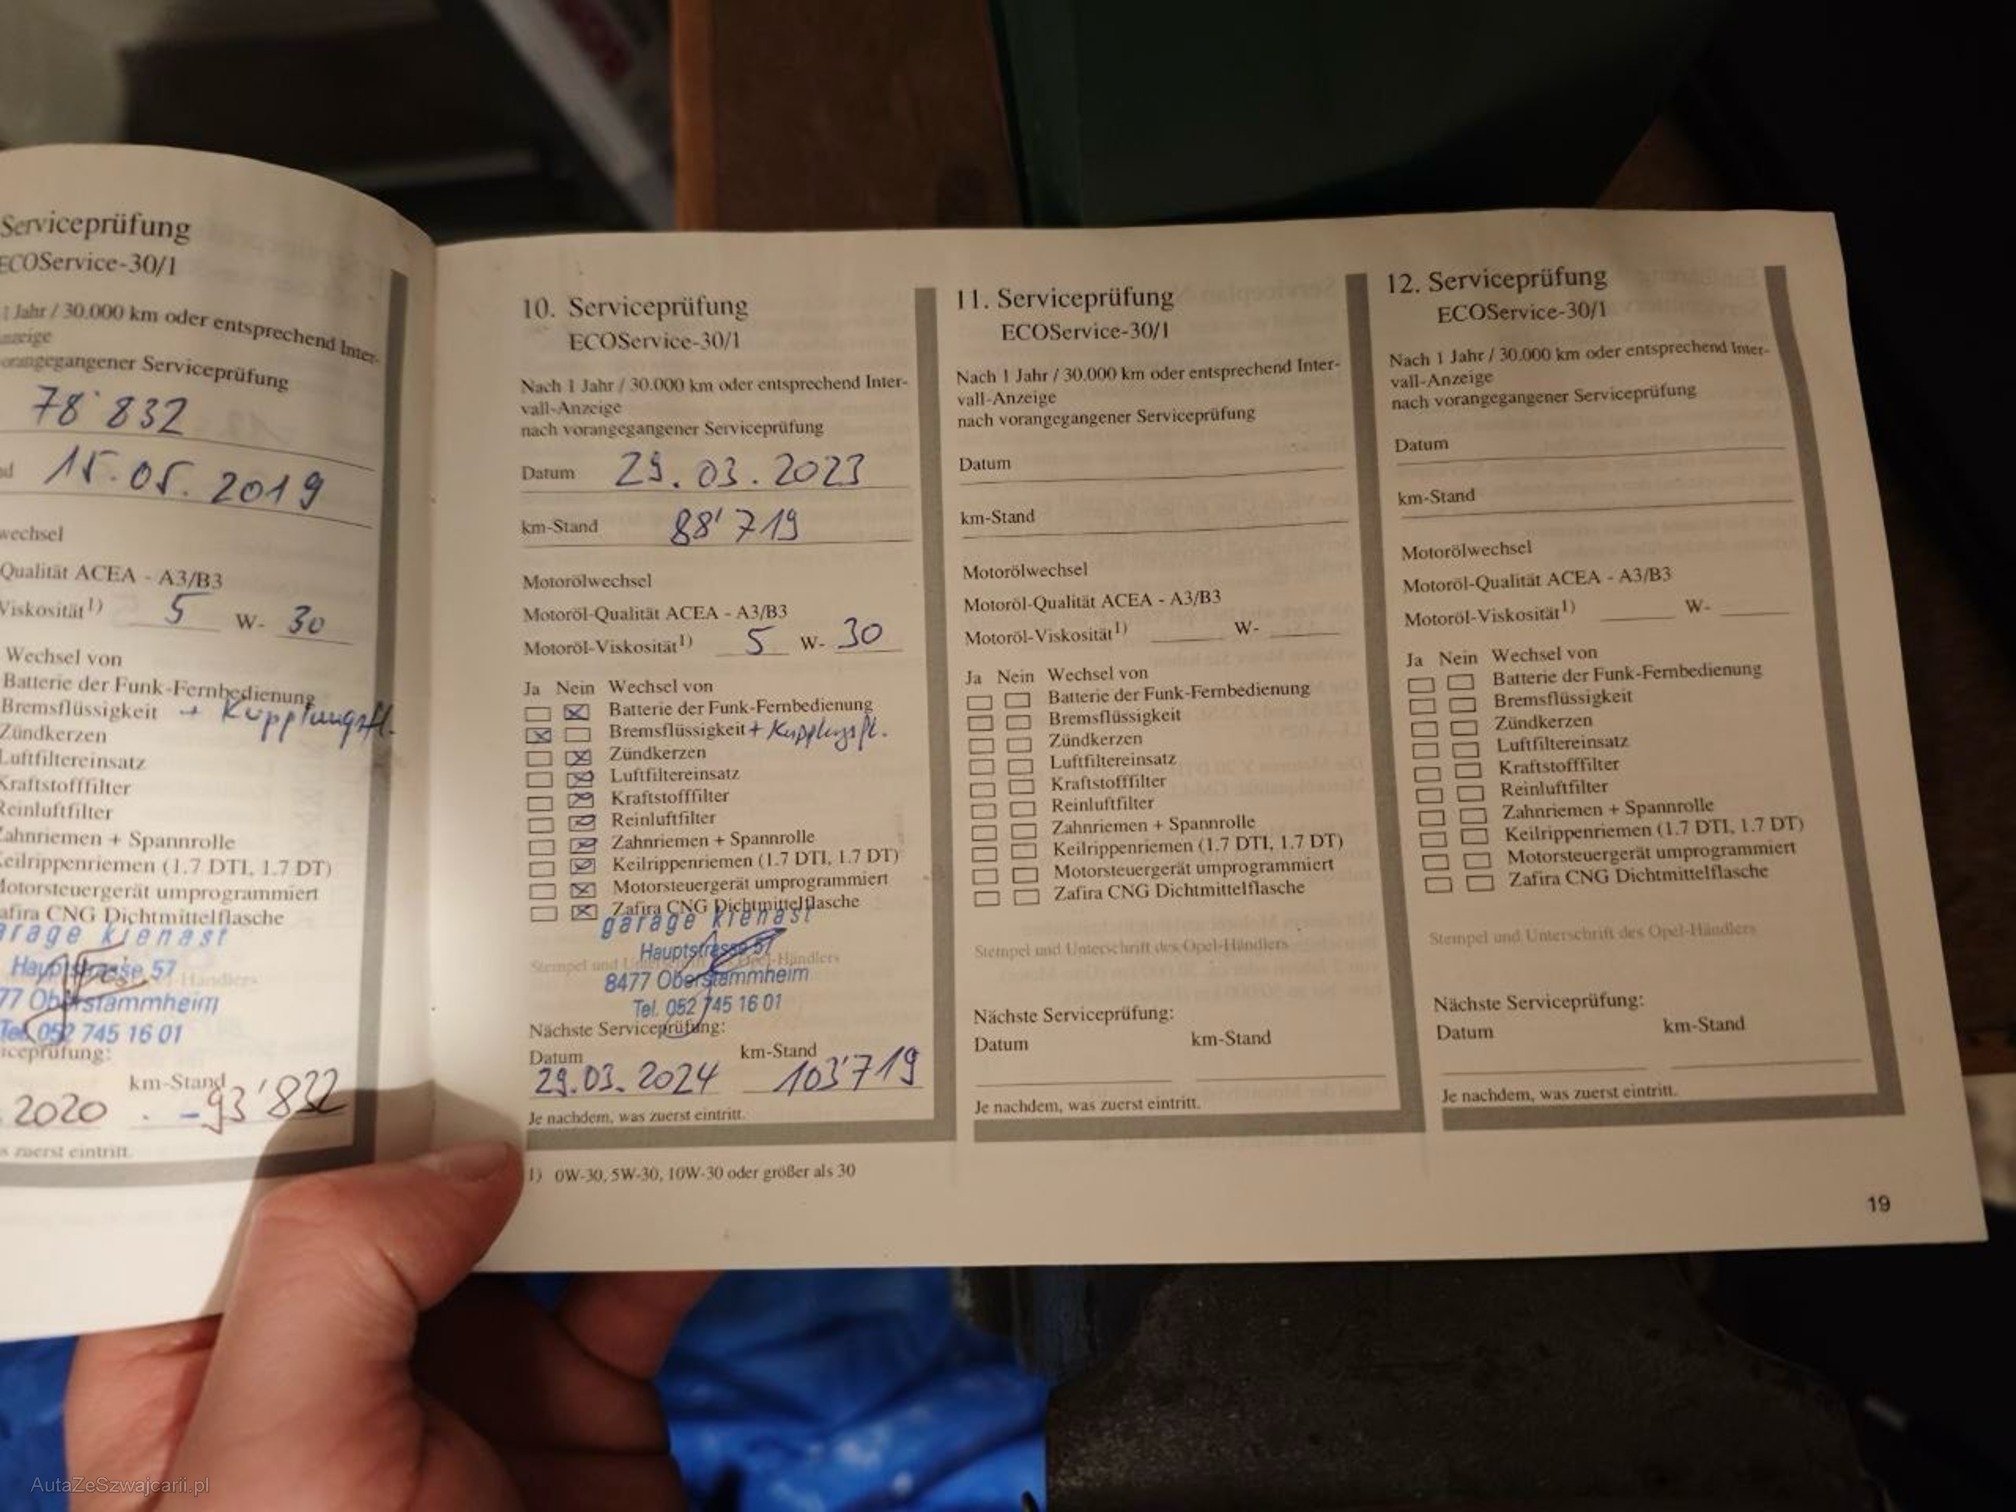 Serviceprüfung
ECOService-30/1
1 Jahr / 30.000 km oder entsprechend Inter-
nzeige
orangegangener Serviceprüfung
78'832
15.05.2019
wechsel
Qualität ACEA - A3/B3
Viskosität1) 5 W- 30
Wechsel von
Batterie der Funk-Fernbedienung
Bremsflüssigkeit + Kupplungsfl.
Zündkerzen
Luftfiltereinsatz
Kraftstofffilter
Reinluftfilter
Zahnriemen + Spannrolle
Keilrippenriemen (1.7 DTI, 1.7 DT)
Motorsteuergerät umprogrammiert
Zafira CNG Dichtmittelflasche
garage kienast
Hauptstrasse 57
77 Oberstammheim
Tel. 052 745 16 01
iceprüfung:
km-Stand
2020 93'832
s zuerst eintritt.
10. Serviceprüfung
ECOService-30/1
Nach 1 Jahr / 30.000 km oder entsprechend Inter-
vall-Anzeige
nach vorangegangener Serviceprüfung
Datum 29.03.2023
km-Stand 88'719
Motorölwechsel
Motoröl-Qualität ACEA - A3/B3
Motoröl-Viskosität1) 5 W- 30
Ja Nein Wechsel von
Batterie der Funk-Fernbedienung
Bremsflüssigkeit + Kupplugsfl.
Zündkerzen
Luftfiltereinsatz
Kraftstofffilter
Reinluftfilter
Zahnriemen + Spannrolle
Keilrippenriemen (1.7 DTI, 1.7 DT)
Motorsteuergerät umprogrammiert
Zafira CNG Dichtmittelflasche
garage kienast
Hauptstrasse 57
Stempel und Unterschrift des Opel-Händlers
8477 Oberstammheim
Tel. 052 745 16 01
Nächste Serviceprüfung:
Datum km-Stand
29.03.2024 103'719
Je nachdem, was zuerst eintritt.
1) 0W-30, 5W-30, 10W-30 oder größer als 30
11. Serviceprüfung
ECOService-30/1
Nach 1 Jahr / 30.000 km oder entsprechend Inter-
vall-Anzeige
nach vorangegangener Serviceprüfung
Datum
km-Stand
Motorölwechsel
Motoröl-Qualität ACEA - A3/B3
Motoröl-Viskosität1) W-
Ja Nein Wechsel von
Batterie der Funk-Fernbedienung
Bremsflüssigkeit
Zündkerzen
Luftfiltereinsatz
Kraftstofffilter
Reinluftfilter
Zahnriemen + Spannrolle
Keilrippenriemen (1.7 DTI, 1.7 DT)
Motorsteuergerät umprogrammiert
Zafira CNG Dichtmittelflasche
Stempel und Unterschrift des Opel-Händlers
Nächste Serviceprüfung:
Datum km-Stand
Je nachdem, was zuerst eintritt.
12. Serviceprüfung
ECOService-30/1
Nach 1 Jahr / 30.000 km oder entsprechend Inter-
vall-Anzeige
nach vorangegangener Serviceprüfung
Datum
km-Stand
Motorölwechsel
Motoröl-Qualität ACEA - A3/B3
Motoröl-Viskosität1) W-
Ja Nein Wechsel von
Batterie der Funk-Fernbedienung
Bremsflüssigkeit
Zündkerzen
Luftfiltereinsatz
Kraftstofffilter
Reinluftfilter
Zahnriemen + Spannrolle
Keilrippenriemen (1.7 DTI, 1.7 DT)
Motorsteuergerät umprogrammiert
Zafira CNG Dichtmittelflasche
Stempel und Unterschrift des Opel-Händlers
Nächste Serviceprüfung:
Datum km-Stand
Je nachdem, was zuerst eintritt.
19
AutaZeSzwajcarii.pl